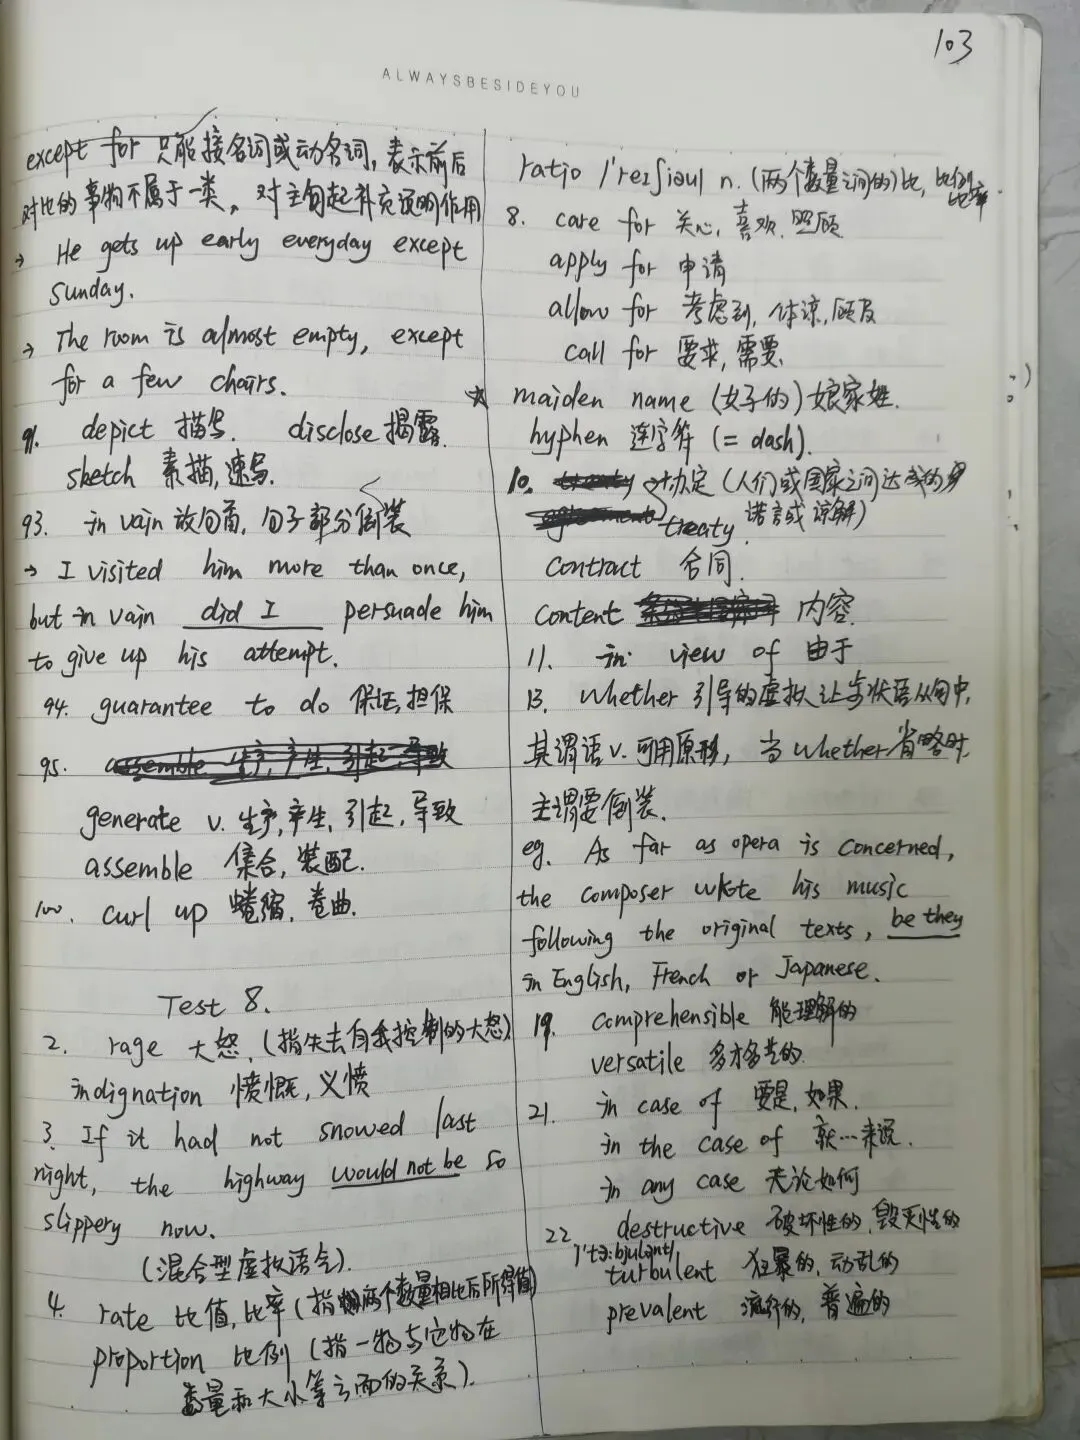 103
ALWAYSBESIDEYOU
except for 只能接名词或动名词，表示前后
对比的事物不属于一类。对主句起补充说明作用
→ He gets up early everyday except
sunday.
→ The room is almost empty, except
for a few chairs.
91. depict 描写. disclose 揭露.
sketch 素描,速写.
93. in vain 放句首，句子部分倒装
→ I visited him more than once,
but in vain did I persuade him
to give up his attempt.
94. guarantee to do 保证,担保
95. assemble 生产,产生,引起,导致
generate v. 生产,产生,引起,导致
assemble 集合,装配.
100. curl up 蜷缩.卷曲.
Test 8.
2. rage 大怒.(指失去自我控制的大怒)
indignation 愤慨,义愤
3. If it had not snowed last
night, the highway would not be so
slippery now.
(混合型虚拟语气).
4. rate 比值,比率(指两个数量相比后所得值)
proportion 比例(指一物与它物在
数量和大小等方面的关系).
ratio /'reɪʃiəu/ n.(两个数量之间的)比,比例
比率.
8. care for 关心,喜欢.照顾
apply for 申请
allow for 考虑到,体谅,顾及
call for 要求,需要.
☆ maiden name (女子的)娘家姓.
hyphen 连字符(= dash).
10. treaty 协定(人们或国家之间达成的
agreement treaty. 诺言或谅解)
contract 合同.
content 内容.
11. in view of 由于
13. whether 引导的虚拟让步状语从句中,
其谓语v.可用原形，当whether省略时
主谓要倒装.
eg. As far as opera is concerned,
the composer wrote his music
following the original texts, be they
in English, French or Japanese.
19. comprehensible 能理解的
versatile 多才多艺的.
21. in case of 要是,如果.
in the case of 就…来说.
in any case 无论如何
22 destructive 破坏性的,毁灭性的
/'tɜ:bjulənt/
turbulent 狂暴的,动乱的
prevalent 流行的,普遍的